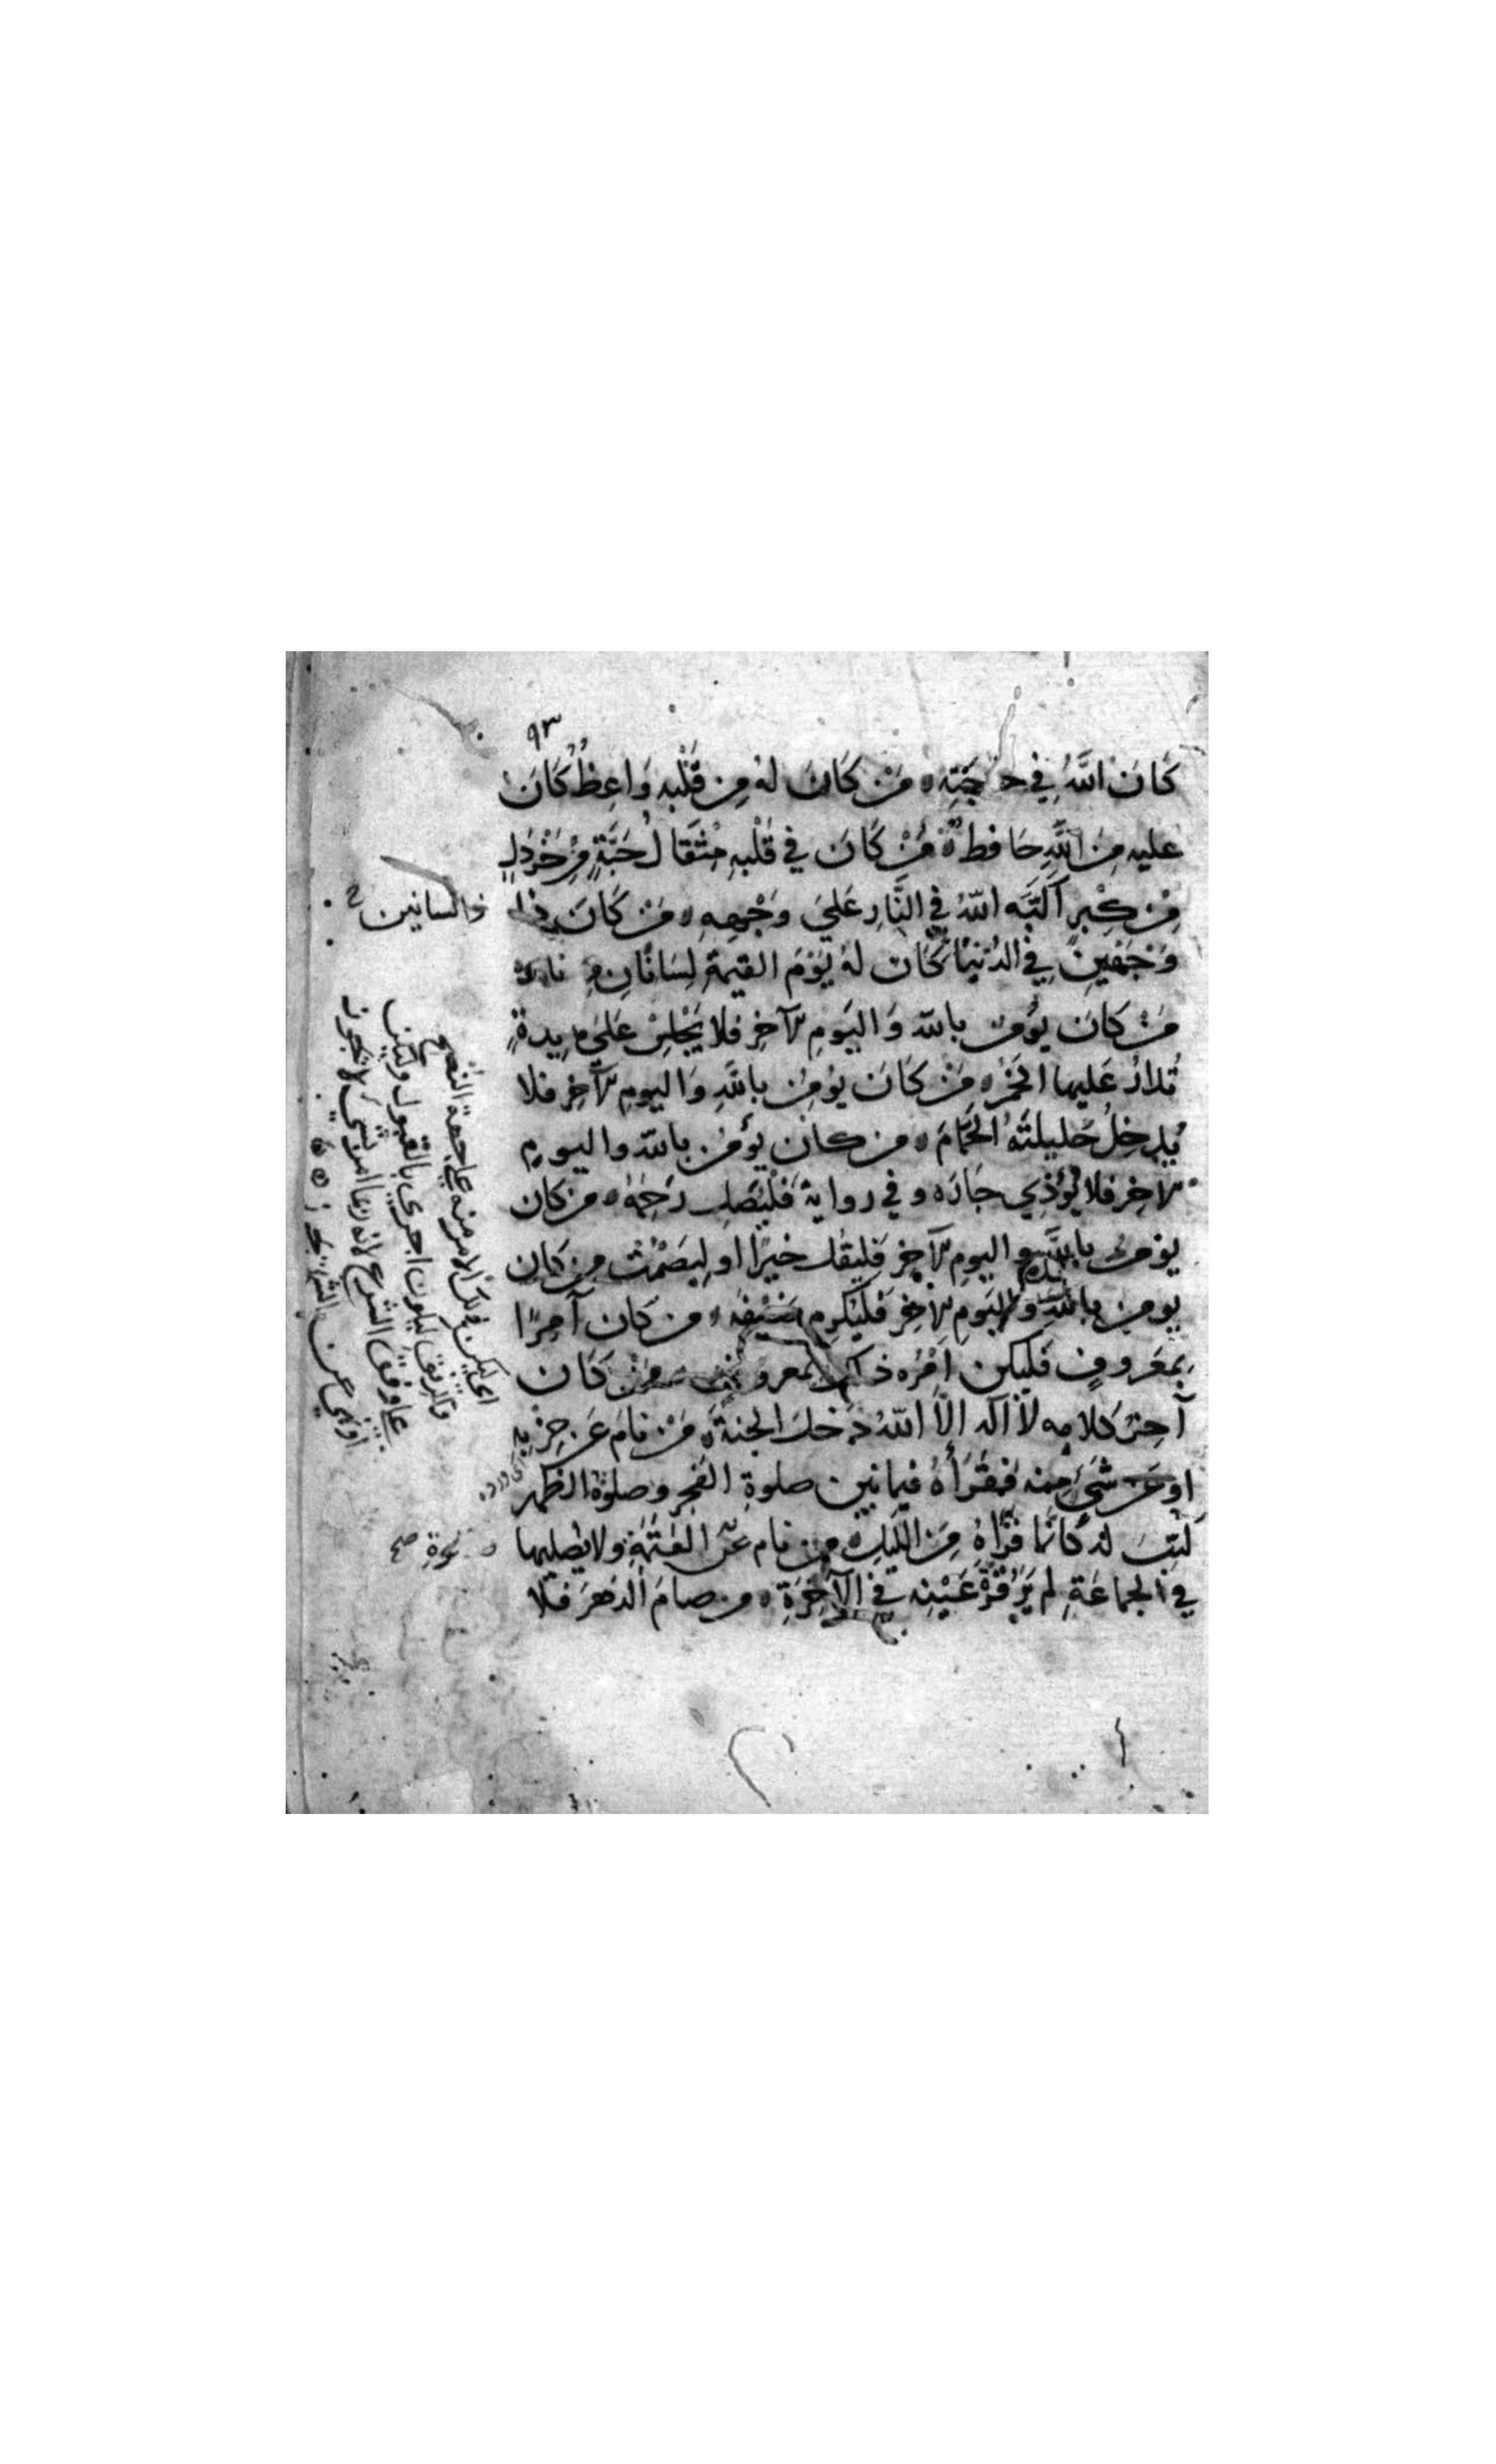 ٩٣
كَانَ اللَّهُ فِي حاجَتِهِ ۞ مَنْ كَانَ لهُ مِن قَلْبِهِ وَاعِظٌ كَانَ
عليه مِنَ اللَّهِ حَافظ ۞ مَنْ كَانَ في قَلْبِهِ مِثْقَالُ حَبَّةٍ مِنْ خَرْدَلٍ
مِنْ كِبْرٍ اَكَبَّه اللّهُ فِي النَّارِ عَلَى وَجْهِهِ ۞ مَنْ كَانَ ذا
وَجْهَيْنِ فِي الدُّنْيَا كَانَ لهُ يَوْمَ القيمةِ لِسَانَانِ مِن نار
مَنْ كَانَ يُؤمن بالله وَاليَومِ الآخِرِ فلا يَجْلِسْ عَلَى مايدةٍ
تُدَارُ عَليها الخَمْرُ ۞ مَنْ كَانَ يؤمِن باللَّهِ وَاليومِ الآخِرِ فلا
يُدخِلْ حَليلتَهُ الحَمَّامَ ۞ من كان يُؤمن بالله واليومِ
الآخِرِ فلا يُؤذِي جَارَه وفي رواية فَلْيَصَل رَحِمَهُ ۞ من كان
يؤمن باللَّهِ و اليومِ الآخِرِ فليقُل خيرًا او ليَصْمُتْ من كان
يومن باللَّهِ واليَومِ الآخِرِ فَلْيُكرِم ضَيْفَهُ ۞ من كان آمِرًا
بِمَعْروفٍ فَليكن اَمْرُه ذلك بمعروف مَنْ كَان
آخِرَ كلامِه لا اله الاَّ اللهُ دَخَلَ الجنةَ ۞ مَنْ نامَ عَن حِزبِه
او عَن شَيءٍ منه فَقَرَأَهُ فيما بين صلوةِ الفَجرِ وصلوةِ الظهر
كُتِبَ لهُ كَأنّما قَرَاهُ مِنَ اللَّيلِ ۞ من نام عن العَتَمَةِ ولا يصليها
في الجماعَةِ لم يَرَ قُرَّةَ عَيْنِه في الآخِرَةِ ۞ من صامَ الدهرَ فلا
ذا لسانين
اى ليكن ذلك الامر منه على جهة النصح
والرفق ليكون احرى بالقبول وليكن
على وفق الشرع لانه ربما امر بشى لا يجوز